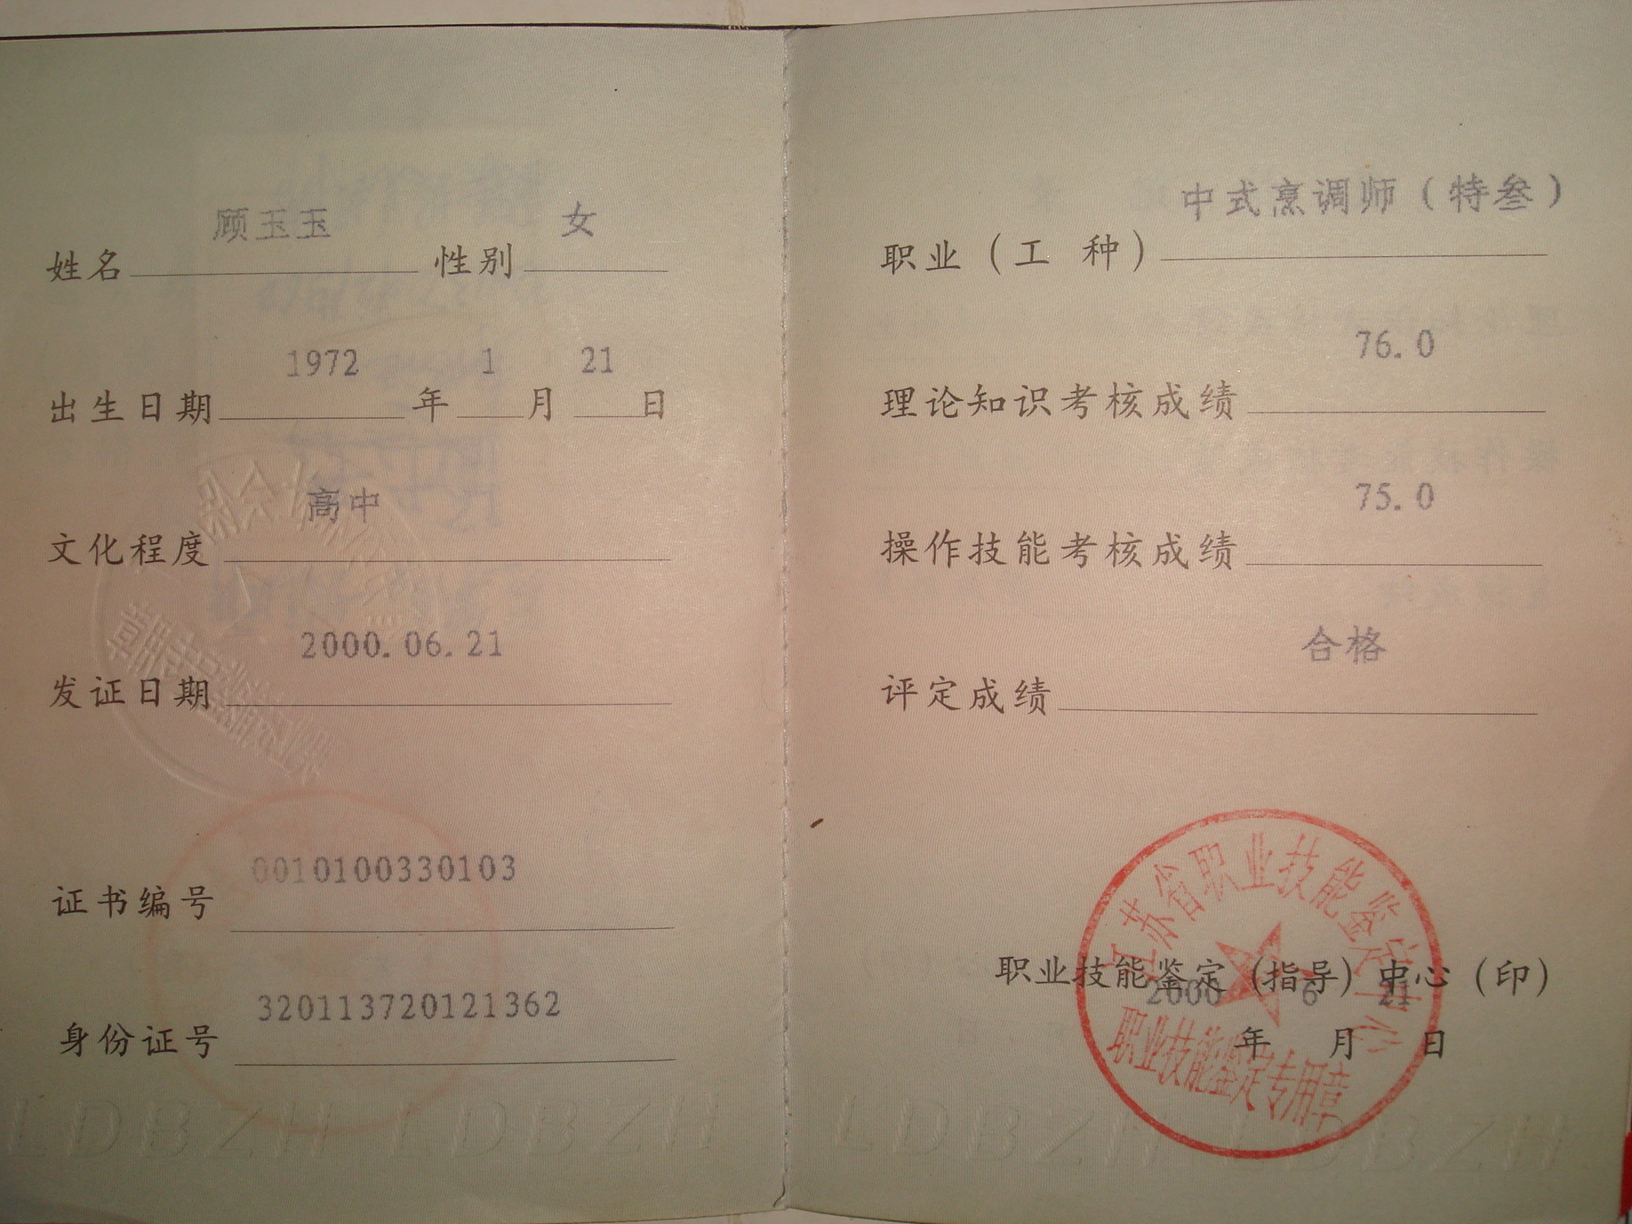 顾玉玉 女
姓名 性别
1972 1 21
出生日期 年 月 日
高中
文化程度
2000.06.21
发证日期
0010100330103
证书编号
320113720121362
身份证号
LDBZH LDBZH
中式烹调师（特叁）
职业（工 种）
76.0
理论知识考核成绩
75.0
操作技能考核成绩
合格
评定成绩
江苏省职业技能鉴定中心
职业技能鉴定（指导）中心（印）
2000 6 21
年 月 日
职业技能鉴定专用章
LDBZH LDBZH